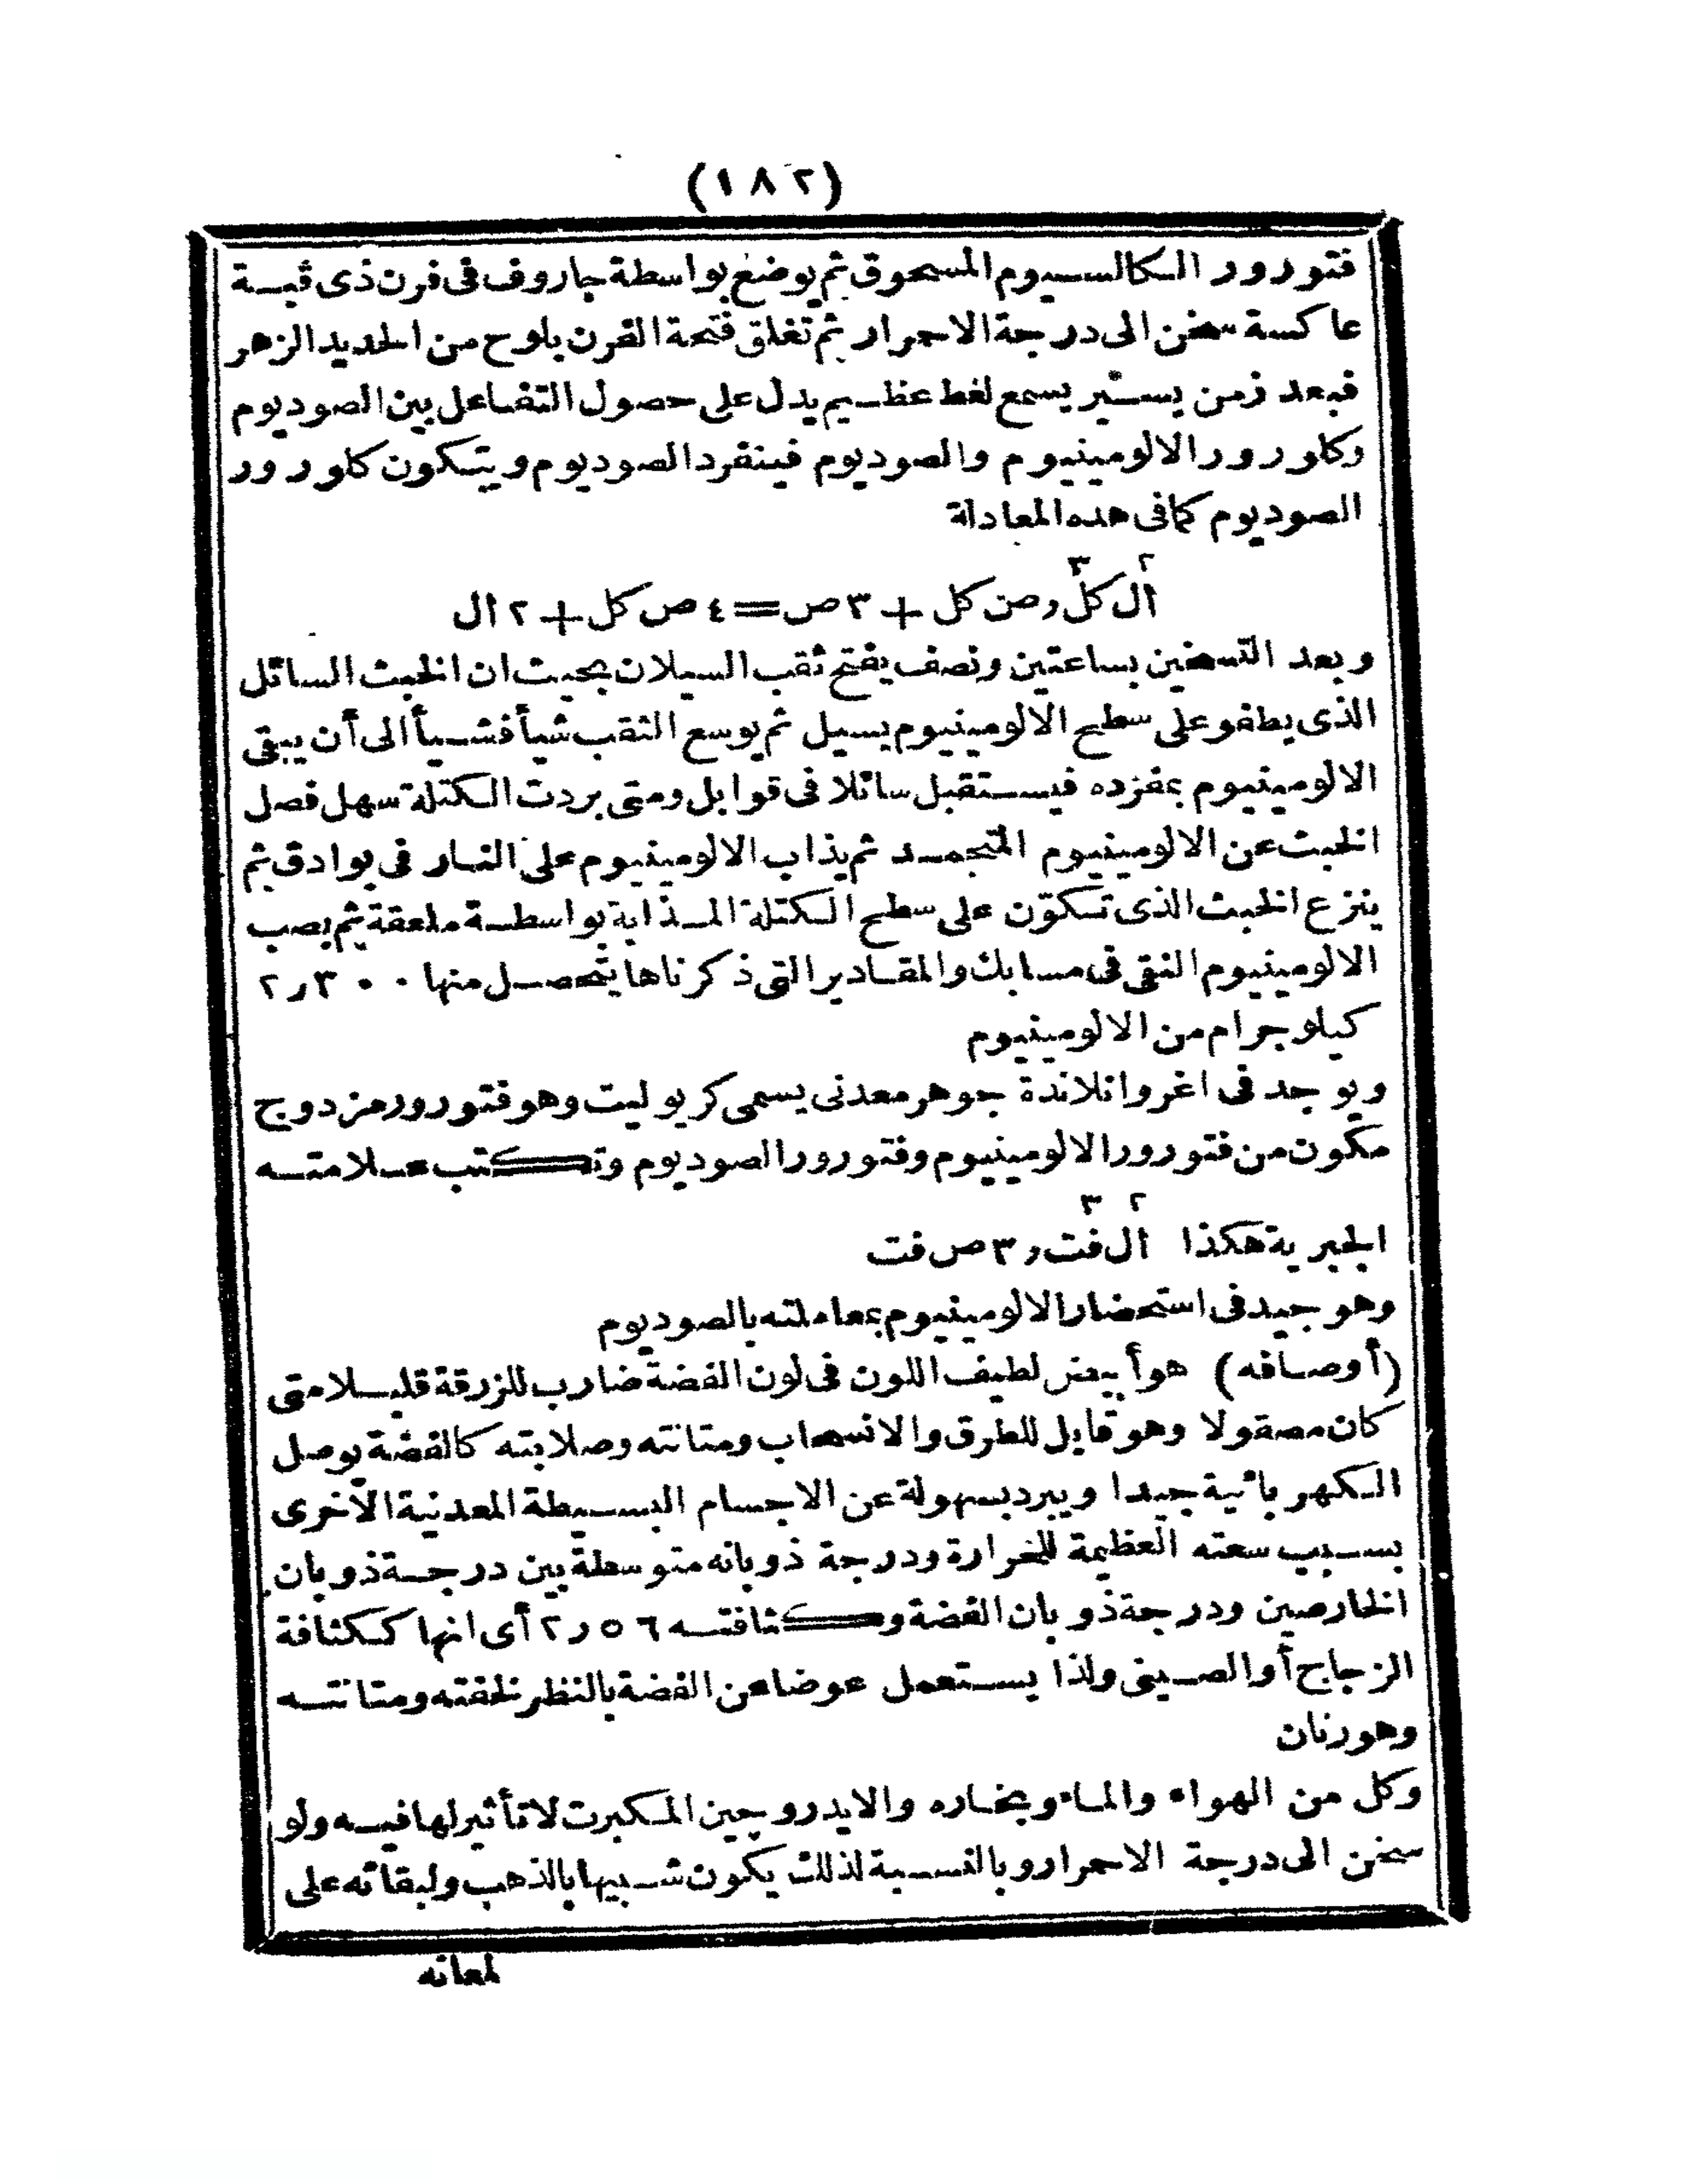 (١٨٢)
فتورور الكالسيوم المسحوق ثم يوضع بواسطة جاروف فى فرن ذى قبة
عاكسة سخن الى درجة الاحمرار ثم تغلق فتحة الفرن بلوح من الحديد الزهر
فبعد زمن يسير يسمع لغط عظيم يدل على حصول التفاعل بين الصوديوم
وكلورور الالومينيوم والصوديوم فينفرد الصوديوم ويتكون كلورور
الصوديوم كما فى هذه المعادلة
٢ ٣
ال كل ر ص كل + ٣ ص = ٤ ص كل + ٢ ال
وبعد التسخين بساعتين ونصف يفتح ثقب السيلان بحيث ان الخبث السائل
الذى يطفو على سطح الالومينيوم يسيل ثم يوسع الثقب شيأ فشيأ الى أن يبقى
الالومينيوم بمفرده فيستقبل سائلا فى قوابل ومتى بردت الكتلة سهل فصل
الخبث عن الالومينيوم المتجمد ثم يذاب الالومينيوم على النار فى بوادق ثم
ينزع الخبث الذى تكوّن على سطح الكتلة المذابة بواسطة ملعقة ثم يصب
الالومينيوم النقى فى مسابك والمقادير التى ذكرناها يتحصل منها ٣٠٠ر٢
كيلوجرام من الالومينيوم
ويوجد فى اغروانلاندة جوهر معدنى يسمى كريوليت وهو فتورور مزدوج
مكون من فتورور الالومينيوم وفتورور الصوديوم وتكتب علامته
٢ ٣
الجبرية هكذا ال فت ر ٣ ص فت
وهو جيد فى استحضار الالومينيوم بمعاملته بالصوديوم
(أوصافه) هو أبيض لطيف اللون فى لون الفضة ضارب للزرقة قليلا متى
كان مصقولا وهو قابل للطرق والانسحاب ومتانته وصلابته كالفضة يوصل
الكهربائية جيدا ويبرد بسهولة عن الاجسام البسيطة المعدنية الأخرى
بسبب سعته العظيمة للحرارة ودرجة ذوبانه متوسطة بين درجة ذوبان
الخارصين ودرجة ذوبان الفضة وكثافته ٥٦ر٢ أى انها ككثافة
الزجاج أو الصينى ولذا يستعمل عوضا عن الفضة بالنظر لخفته ومتانته
وهو رنان
وكل من الهواء والماء وبخاره والايدروچين المكبرت لا تأثير لها فيه ولو
سخن الى درجة الاحمرار وبالنسبة لذلك يكون شبيها بالذهب ولبقائه على
لمعانه